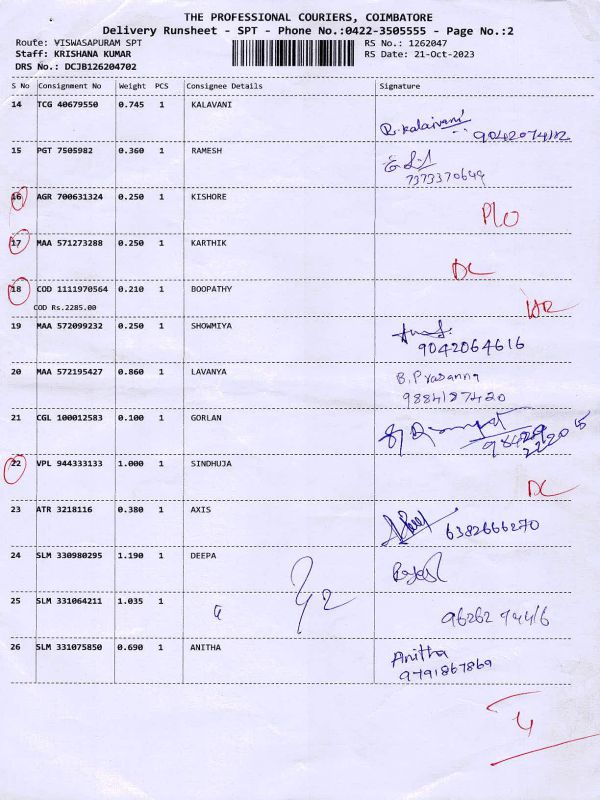 THE PROFESSIONAL COURIERS, COIMBATORE
Delivery Runsheet - SPT - Phone No.:0422-3505555 - Page No.:2
Route: VISWASAPURAM SPT
RS No.: 1262047
Staff: KRISHANA KUMAR
RS Date: 21-Oct-2023
DRS No.: DCJB126204702
S No Consignment No Weight PCS Consignee Details Signature
14 TCG 40679550 0.745 1 KALAVANI
R. Kalaivani
15 PGT 7505982 0.360 1 RAMESH
7373370649
16 AGR 700631324 0.250 1 KISHORE
P/O
17 MAA 571273288 0.250 1 KARTHIK
DC
18 COD 1111970564 0.210 1 BOOPATHY
COD Rs.2285.00
19 MAA 572099232 0.250 1 SHOWMIYA
9042064616
20 MAA 572195427 0.860 1 LAVANYA
B. Prasanna
9884187420
21 CGL 100012583 0.100 1 GORLAN
22 VPL 944333133 1.000 1 SINDHUJA
DC
23 ATR 3218116 0.380 1 AXIS
6382666270
24 SLM 330980295 1.190 1 DEEPA
25 SLM 331064211 1.035 1
26 SLM 331075850 0.690 1 ANITHA
Anitha
9791867869